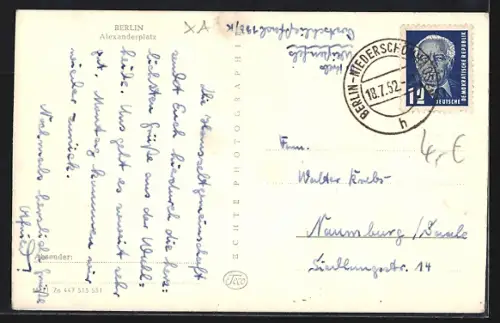 BERLIN
Alexanderplatz
Die Hausgemeinschaft
sendet Euch hierdurch die herz-
lichsten Grüße aus der Wald-
heide. Uns geht es soweit sehr
gut. Montag kommen wir
wieder zurück.
Nochmals herzliche Grüße
Absender:
7a 447 515 551
ECHTE PHOTOGRAPHIE
BERLIN-NIEDERSCHÖ
18.7.52.-
h
12
DEUTSCHE
DEMOKRATISCHE REPUBLIK
4,-€
Fam.
Walter Krebs
Naumburg/Saale
Siedlungsstr. 14